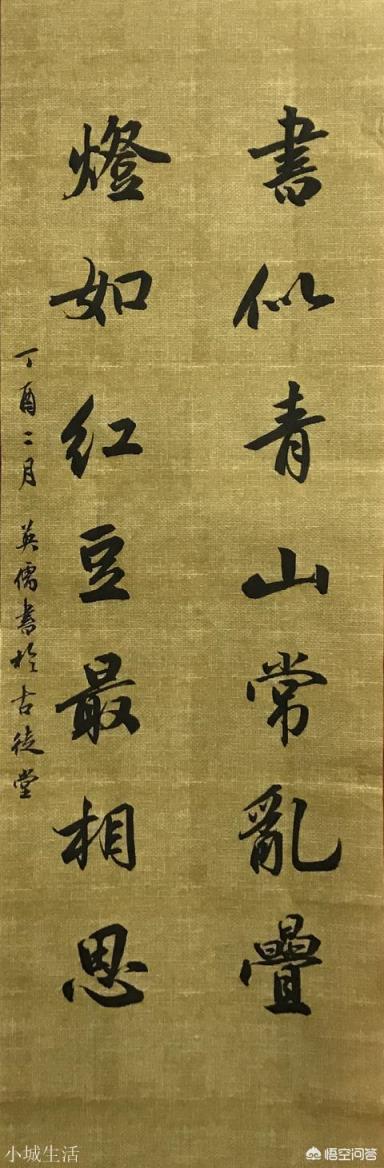 書似青山常亂疊
燈如红豆最相思
丁酉二月 英儒書於古徒堂
小城生活
悟空问答